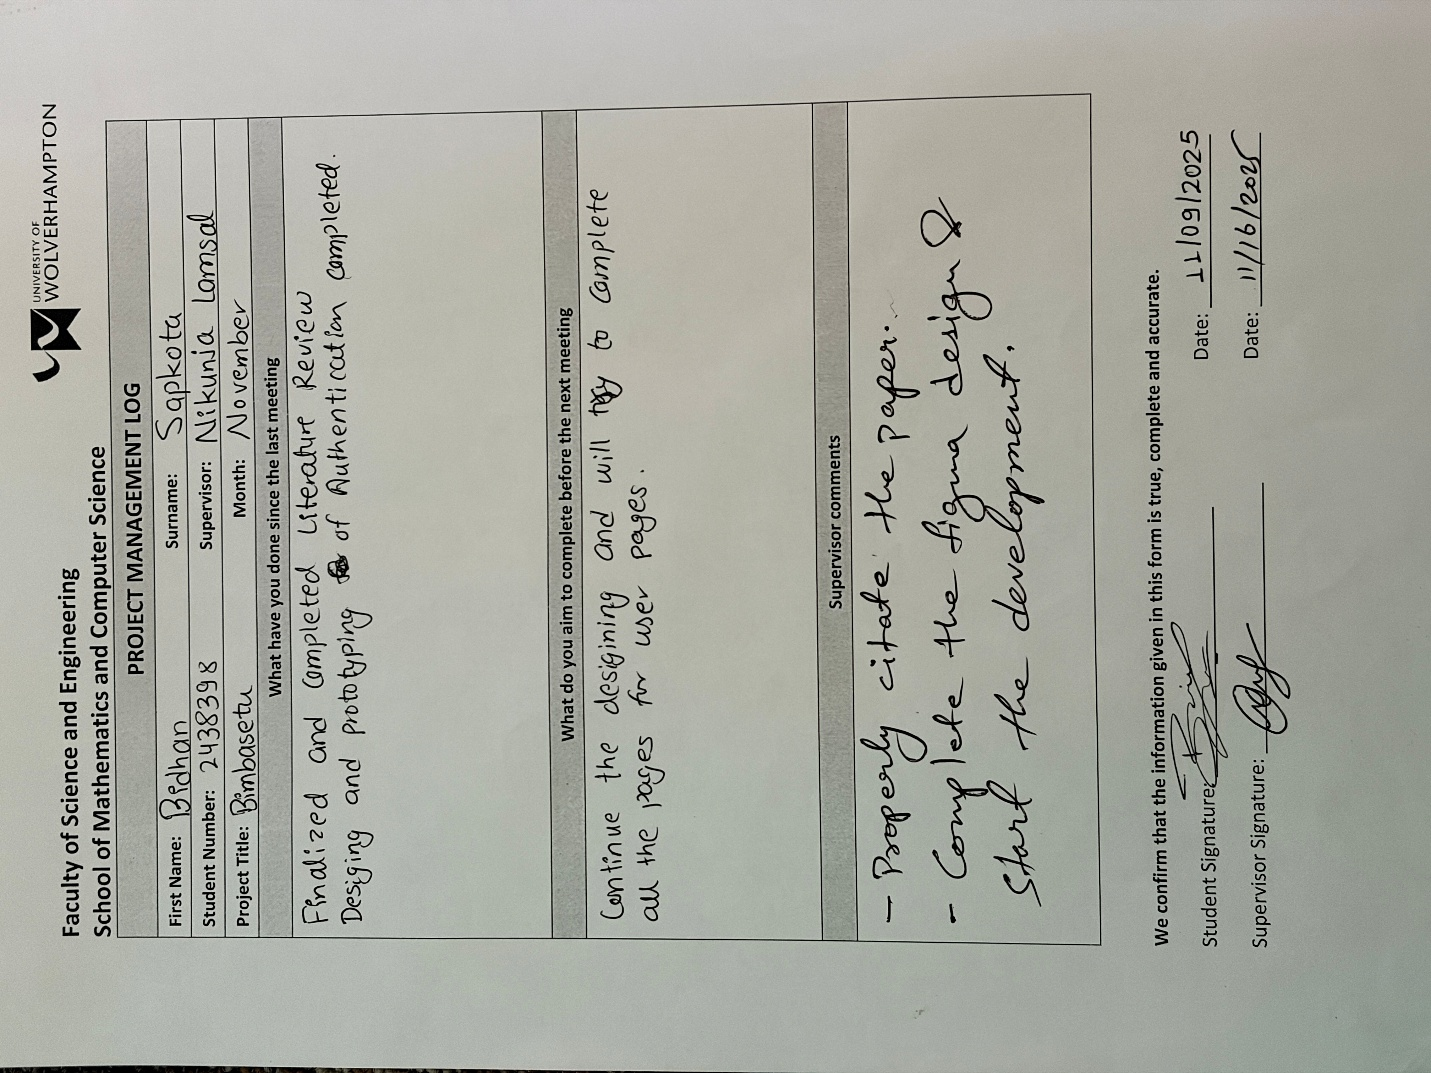 UNIVERSITY OF
WOLVERHAMPTON
Faculty of Science and Engineering
School of Mathematics and Computer Science
PROJECT MANAGEMENT LOG
First Name: Bidhan Surname: Sapkota
Student Number: 2438398 Supervisor: Nikunja Lamsal
Project Title: Bimbasetu Month: November
What have you done since the last meeting
Finalized and completed Literature Review
Desiging and prototyping of Authentication completed.
What do you aim to complete before the next meeting
Continue the desigining and will try to complete
all the pages for user pages.
Supervisor comments
- Properly citate the paper.
- Complete the figma design &
Start the development.
We confirm that the information given in this form is true, complete and accurate.
Student Signature: Date: 11/09/2025
Supervisor Signature: Date: 11/16/2025